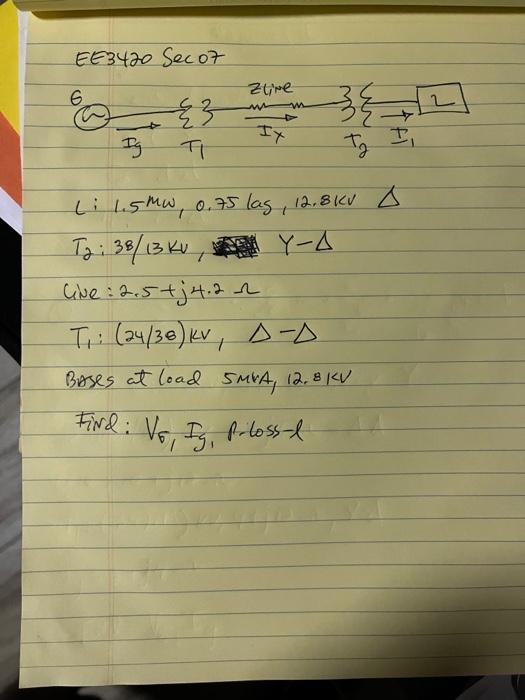 EE3420 Sec 07
G Zline L
Ig T1 Ix T2 I1
L: 1.5 MW, 0.75 lag, 12.8 KV Δ
T2: 38/13 KV, Y-Δ
Line: 2.5 + j4.2 Ω
T1: (24/38) KV, Δ-Δ
Bases at load 5MVA, 12.8 KV
Find: VG, Ig, P-loss-l